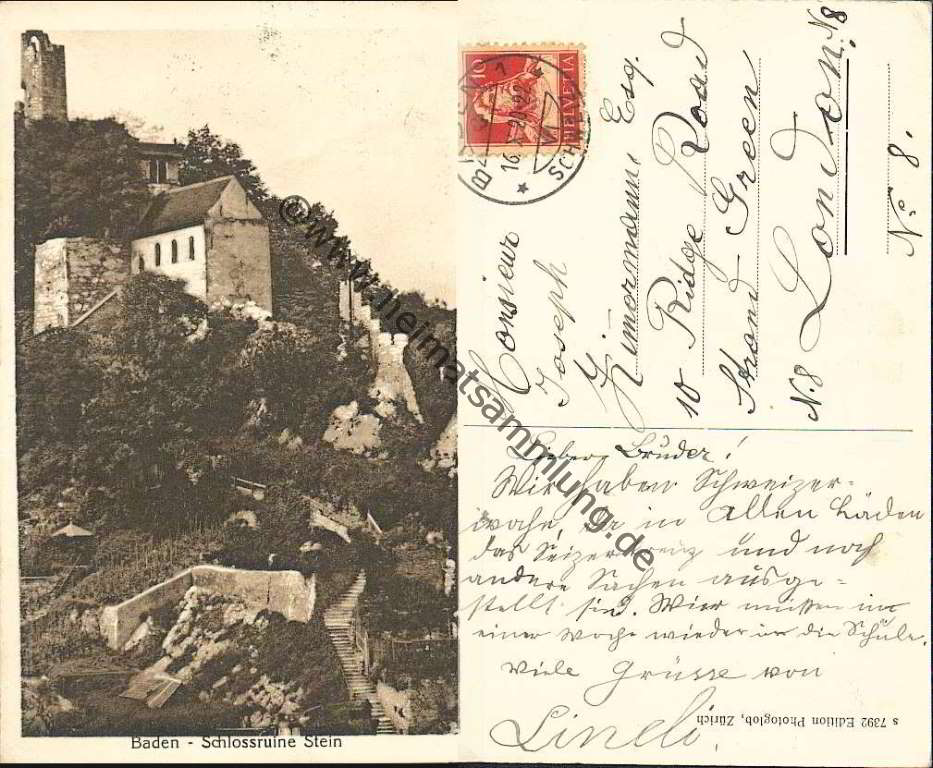 Baden - Schlossruine Stein
© www.heimatsammlung.de
10
HELVETIA
BADEN
16. X 20
SCHWEIZ
Monsieur
Joseph
Zimmermann Esq.
10 Ridge Road
Strand Green
N.8 London. N8
N.º 8.
Lieber Bruder!
Wir haben Schweizer-
woche, in allen Läden
das und noch
andere Sachen ausge-
stellt sind. Wir müssen in
einer Woche wieder in die Schule.
Viele Grüsse von
Lineli.
s 7392 Edition Photoglob, Zürich